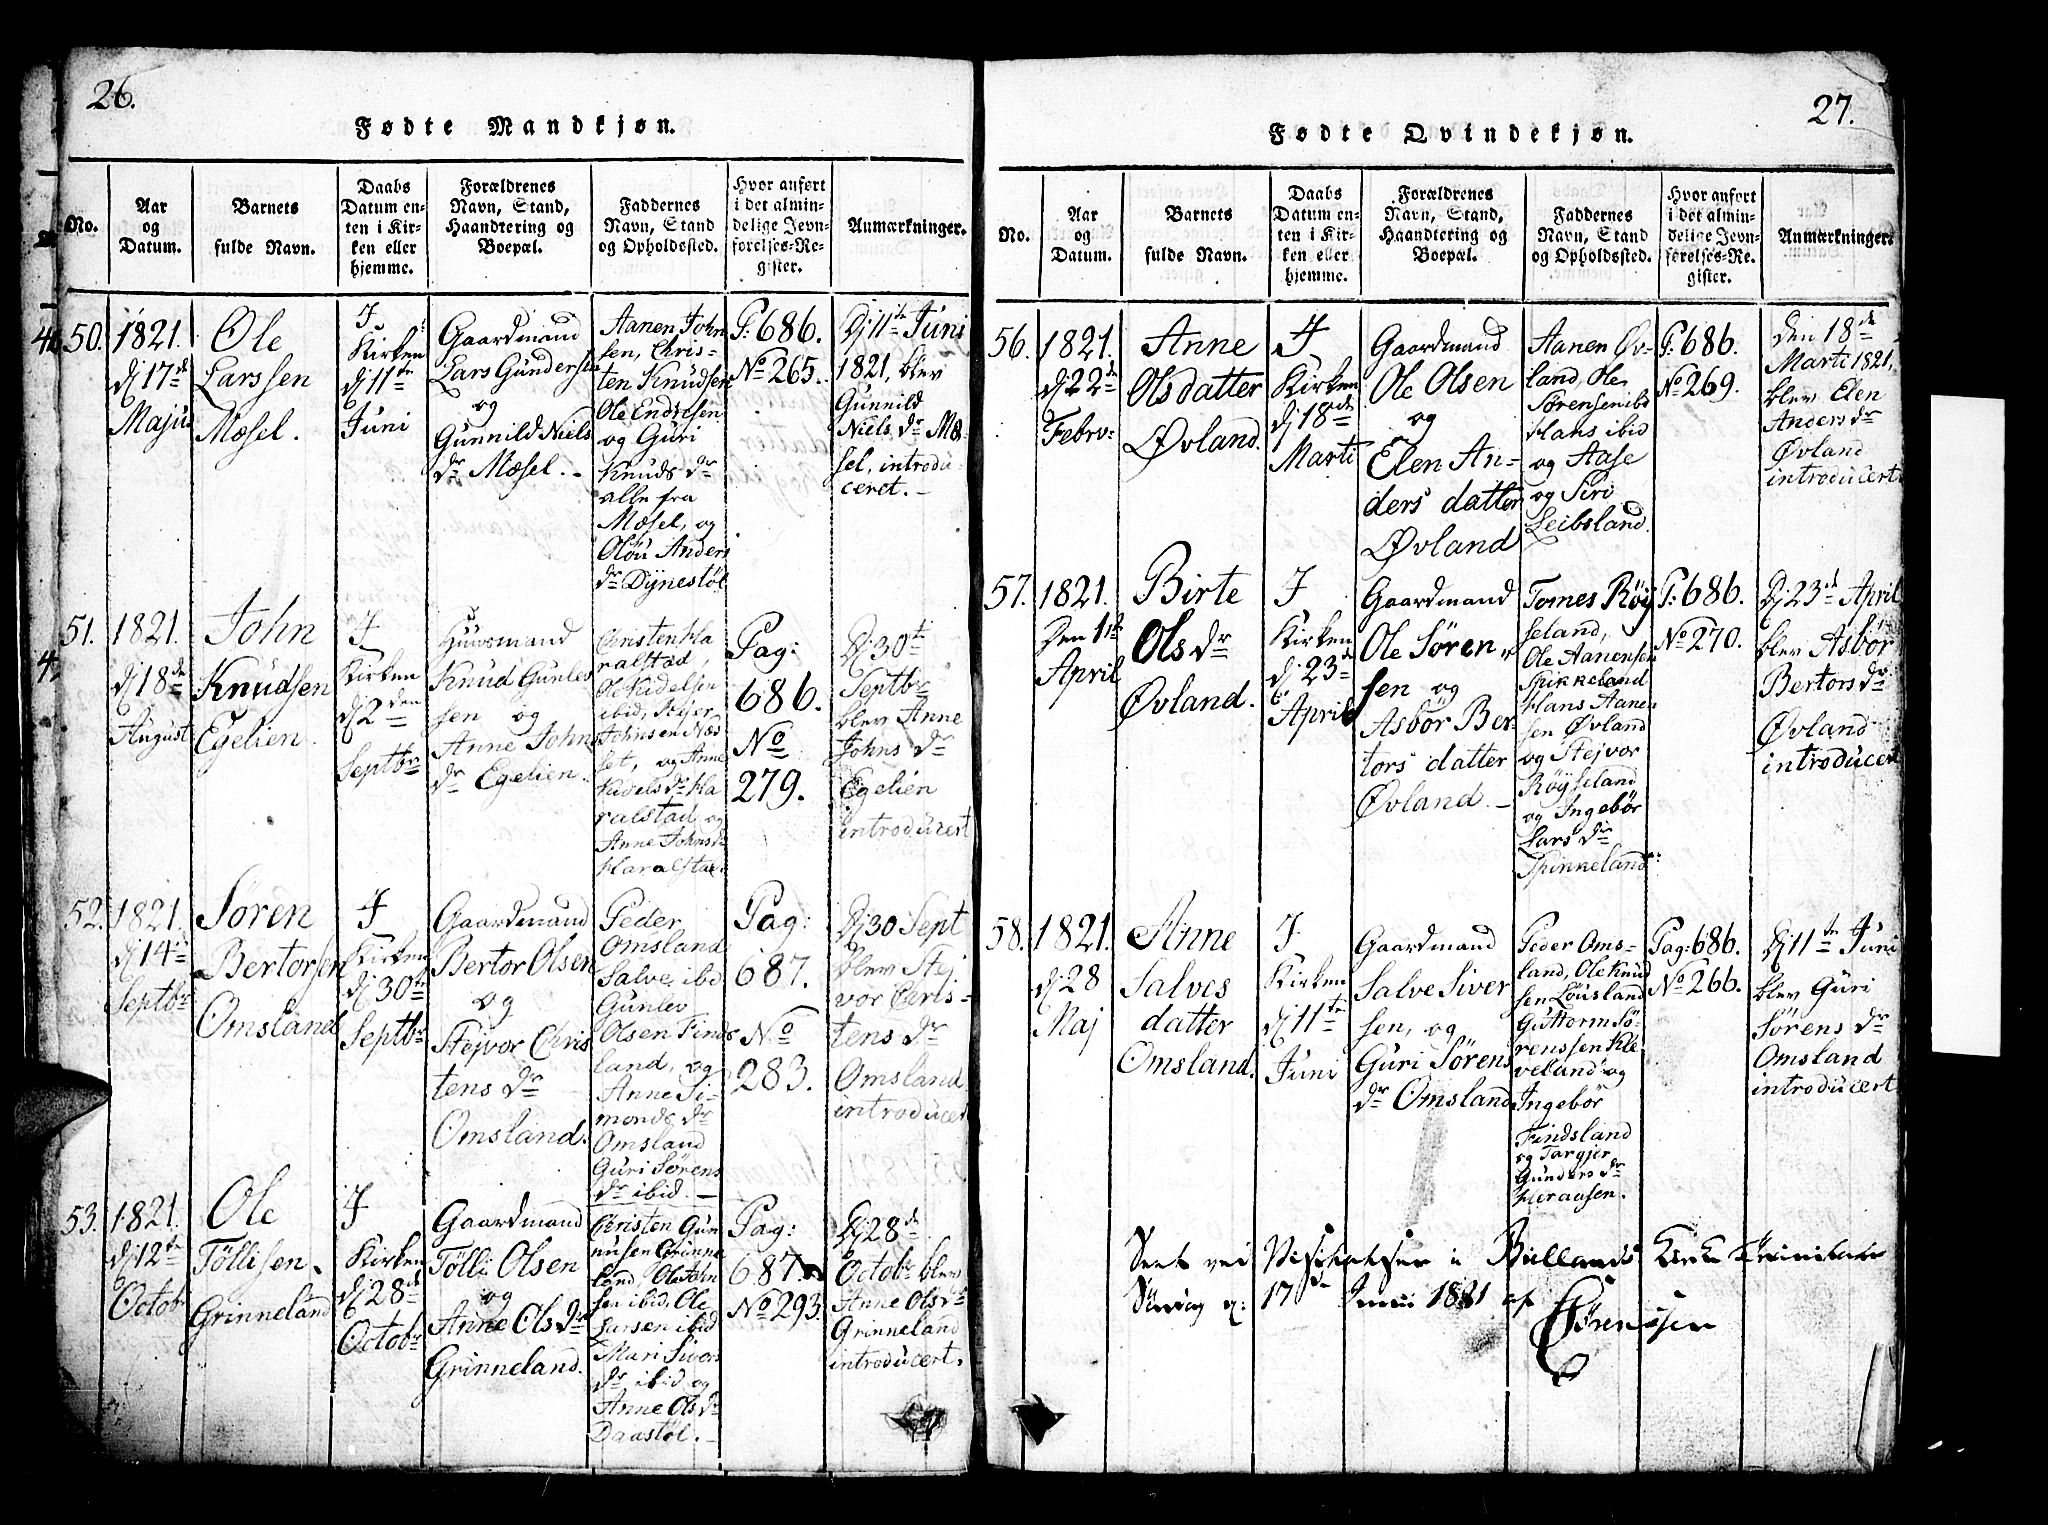 26.
Fødte Mandkjøn.
No.
Aar
og
Datum.
Barnets
fulde Navn.
Daabs
Datum en-
ten i Kir-
ken eller
hjemme.
Forældrenes
Navn, Stand,
Haandtering og
Boepæl.
Faddernes
Navn, Stand
og Opholdssted.
Hvor anført
i det almin-
delige Jevn-
førelses-Re-
gister.
Anmærkninger.
50.
1821.
dj 17de
Maju
Ole
Larssen
Mæsel.
I
Kirken
dj 11te
Juni
Gaardmand
Lars Gundersen
og
Gunnild Niels
dr Mæsel. -
Aanen John
sen, Chris-
ten Knudsen
Ole Endresen
og Guri
Knuds dr
alle fra
Mæsel, og
Olöu Anders
dr Dynestøl
P: 686.
No 265.
Dj 11te Juni
1821, blev
Gunnild
Niels dr Mæ-
sel, introdu-
ceret. -
51.
1821.
dj 18de
August
John
Knudsen
Egelien.
I
Kirken
dj 2den
Septbr
Huusmand
Knud Gunles
sen og
Anne Johns
dr Egelien.
Christen Ha
ralstad,
Ole Kidelsen
ibid, Kjer
Johnsen Næs
set, og Anne
Kidels dr Ha
ralstad og
Anne Johns dr
Haralstad.
Pag:
686.
No
279.
Dj 30ti
Septbr
blev Anne
Johns dr
Egelien
introducert
52.
1821.
dj 14de
Septbr
Søren
Bertorsen
Omsland
I
Kirken
dj 30te
Septbr
Gaardmand
Bertor Olsen
og
Stejvor Chris
tens dr
Omsland.
Peder
Omsland
Salve ibid
Gunlev
Olsen Finds
land, og
Anne Si-
monds dr
Omsland
Guri Sørens
dr ibid. -
Pag:
687.
No
283.
Dj 30 Sept
blev Stej
vor Chris-
tens dr
Omsland
introducert
53.
1821.
dj 12te
Octobr
Ole
Töllisen.
Grinneland
I
Kirken
dj 28de
Octobr
Gaardmand
Tölli Olsen
og
Anne Ols dr
Grinneland.
Christen Gun
nusen Grinne
land, Ole John
sen ibid, Ole
Larsen ibid
Mari Sivers
dr ibid og
Anne Ols dr
Daastøl. -
Pag:
687.
No 293.
Dj 28de
Octobr blev
Anne Ols dr
Grinneland
introducert.
27.
Fødte Qvindekjøn.
No.
Aar
og
Datum.
Barnets
fulde Navn.
Daabs
Datum en-
ten i Kir-
ken eller
hjemme.
Forældrenes
Navn, Stand,
Haandtering og
Boepæl.
Faddernes
Navn, Stand
og Opholdssted.
Hvor anført
i det almin-
delige Jevn-
førelses-Re-
gister.
Anmærkninger.
56.
1821.
dj 22de
Febrv:
Anne
Olsdatter
Øvland.
I
Kirken
dj 18de
Marti
Gaardmand
Ole Olsen
og
Elen An-
ders datter
Øvland
Aanen Øv-
land, Ole
Sørensen ibd
Hans ibid
og Aase
og Siri
Leibsland.
P: 686.
No 269.
Den 18de
Marti 1821,
blev Elen
Anders dr
Øvland
introducert
57.
1821.
Den 1ste
April
Birte
Ols dr
Øvland.
I
Kirken
dj 23de
April
Gaardmand
Ole Sören
sen og
Asbör Ber-
tors datter
Øvland. -
Tomes Röy
seland,
Ole Aanensen
Spikkeland
Hans Aanen
sen Øvland
og Stejvor
Röyseland
og Ingebör
Lars dr
Spinkeland.
P: 686.
No 270.
Dj 23de April
blev Asbör
Bertors dr
Øvland
introducert
58.
1821.
dj 28
Maj
Anne
Salves
datter
Omsland.
I
Kirken
dj 11te
Juni
Gaardmand
Salve Siver
sen, og
Guri Sørens
dr Omsland
Peder Oms-
land, Ole Knud
sen Löusland
Guttorm Sö-
renssen Kle
veland og
Ingebör
Findsland
og Targjer
Gunders dr
Pag: 686.
No 266.
Dj 11te Juni
blev Guri
Sørens dr
Omsland
introducert
Seet ved Visitatsen i Biellands Kirke Trinitatis
Söndag d: 17de Junii 1821 af
Sörenssen